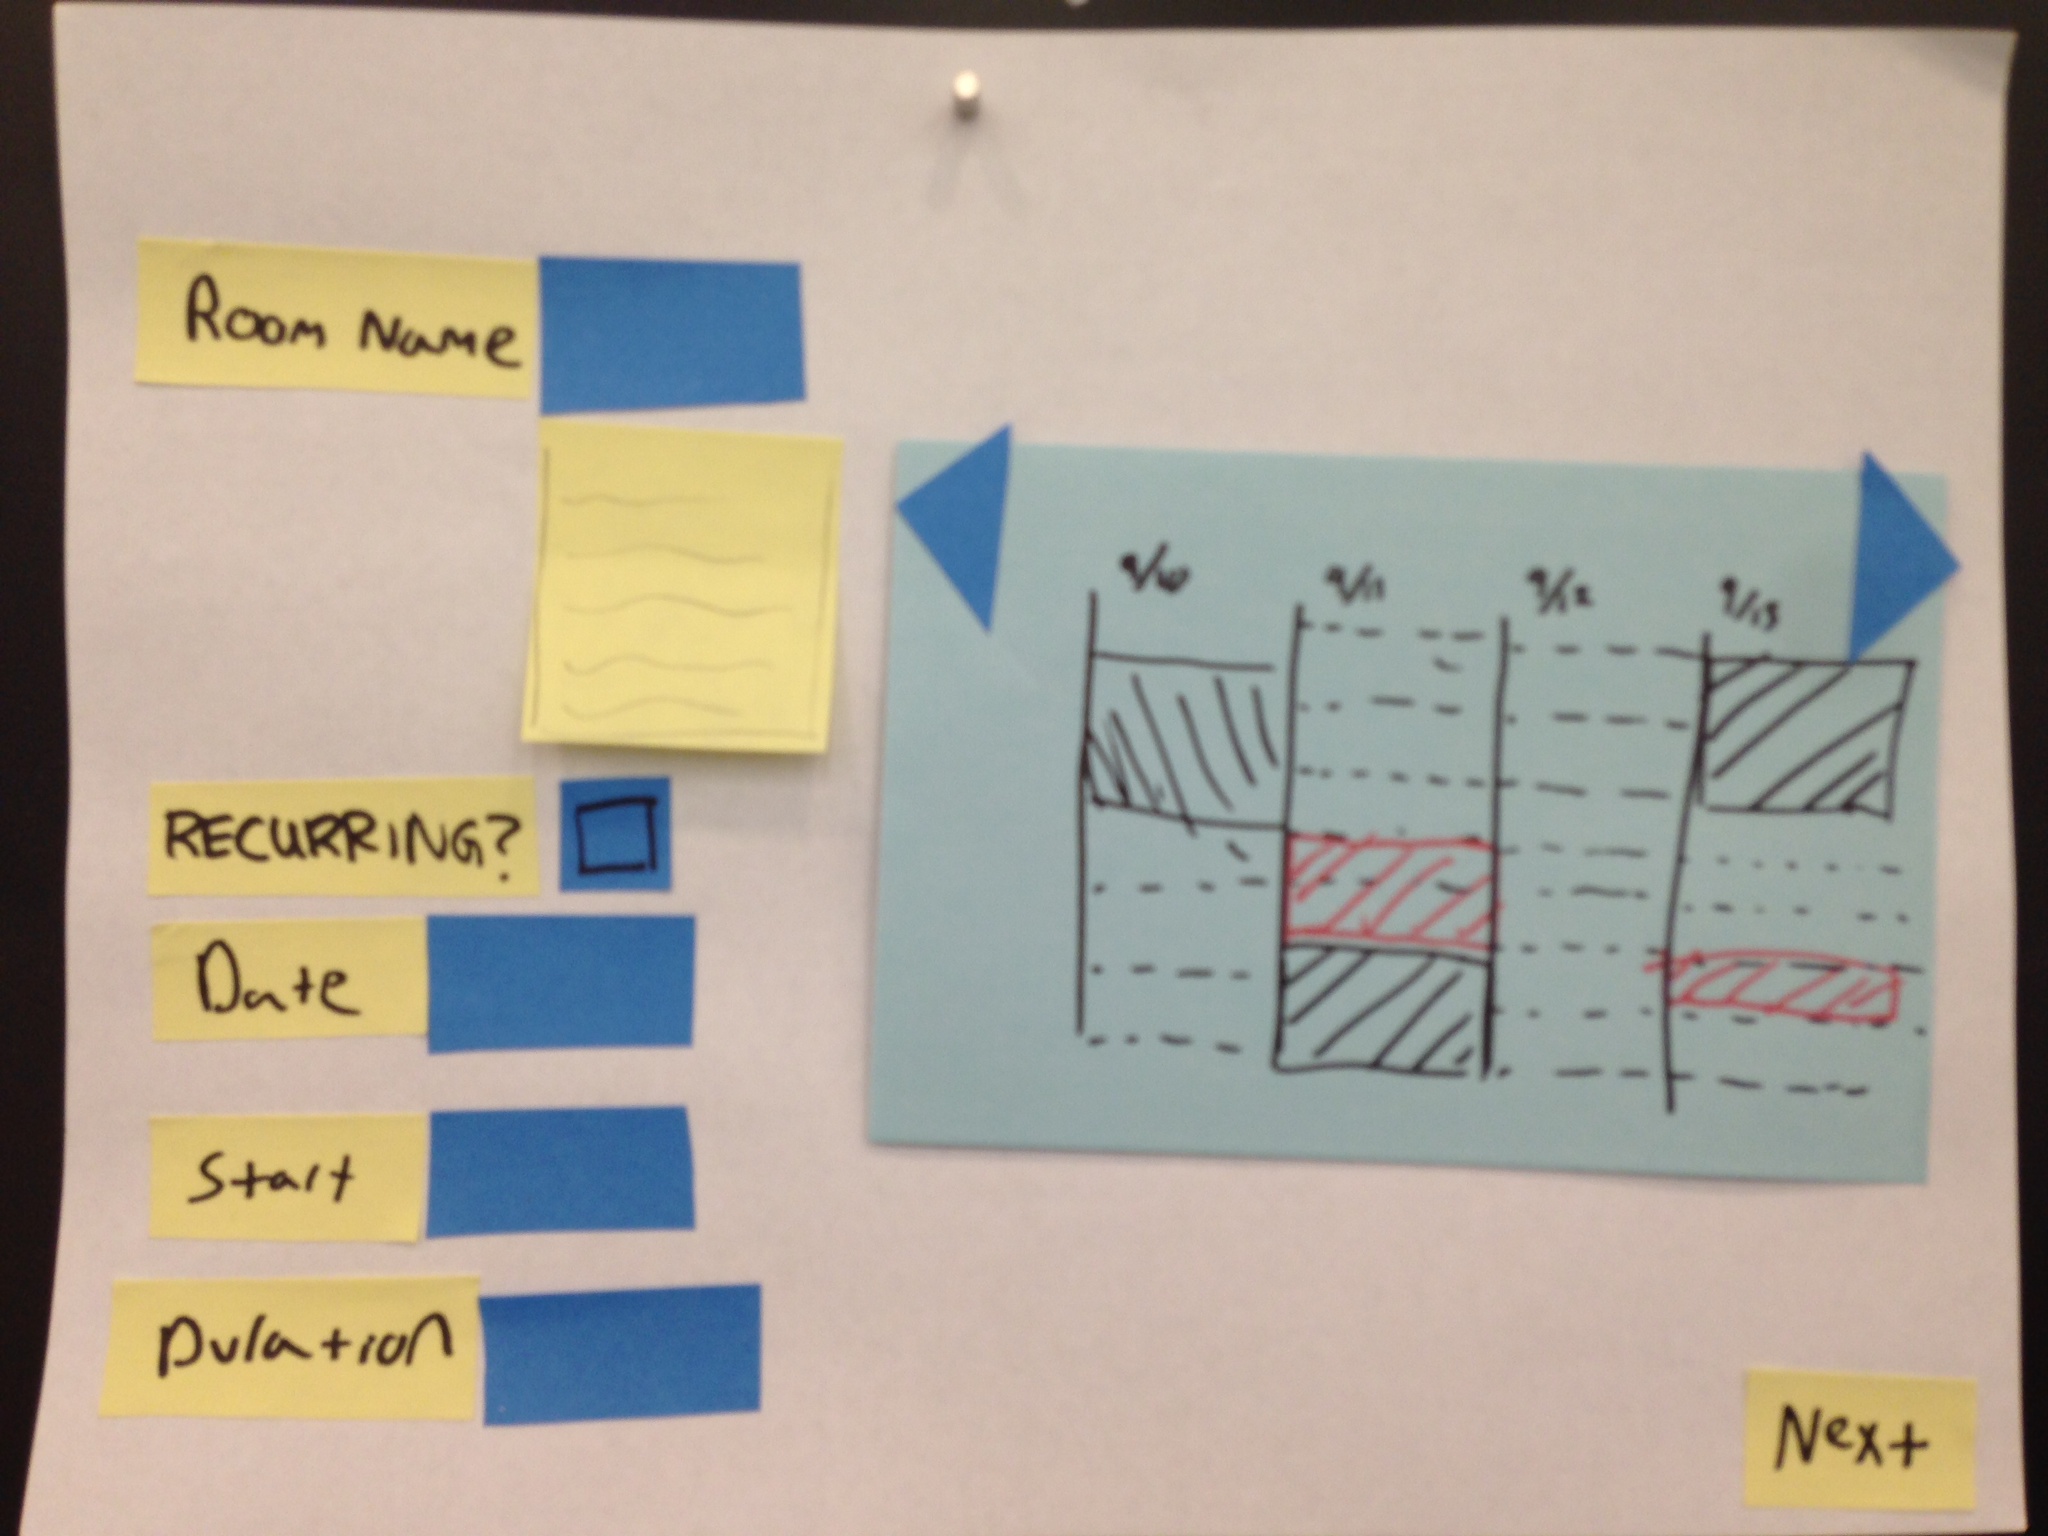 Room Name
RECURRING?
Date
Start
Duration
9/10
9/11
9/12
9/13
Next